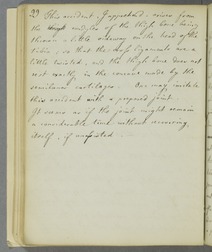 29 This accident, I apprehend, arises from
the condyles of the thigh bone being
thrown a little sideways on the head of the
tibia, so that the cross ligaments are a
little twisted, and the thigh bone does not
rest exactly in the concave made by the
semilunar cartilages. One may imitate
this accident with a prepared joint.
It seems as if the joint might remain
a considerable time without recovering
itself, if unassisted.